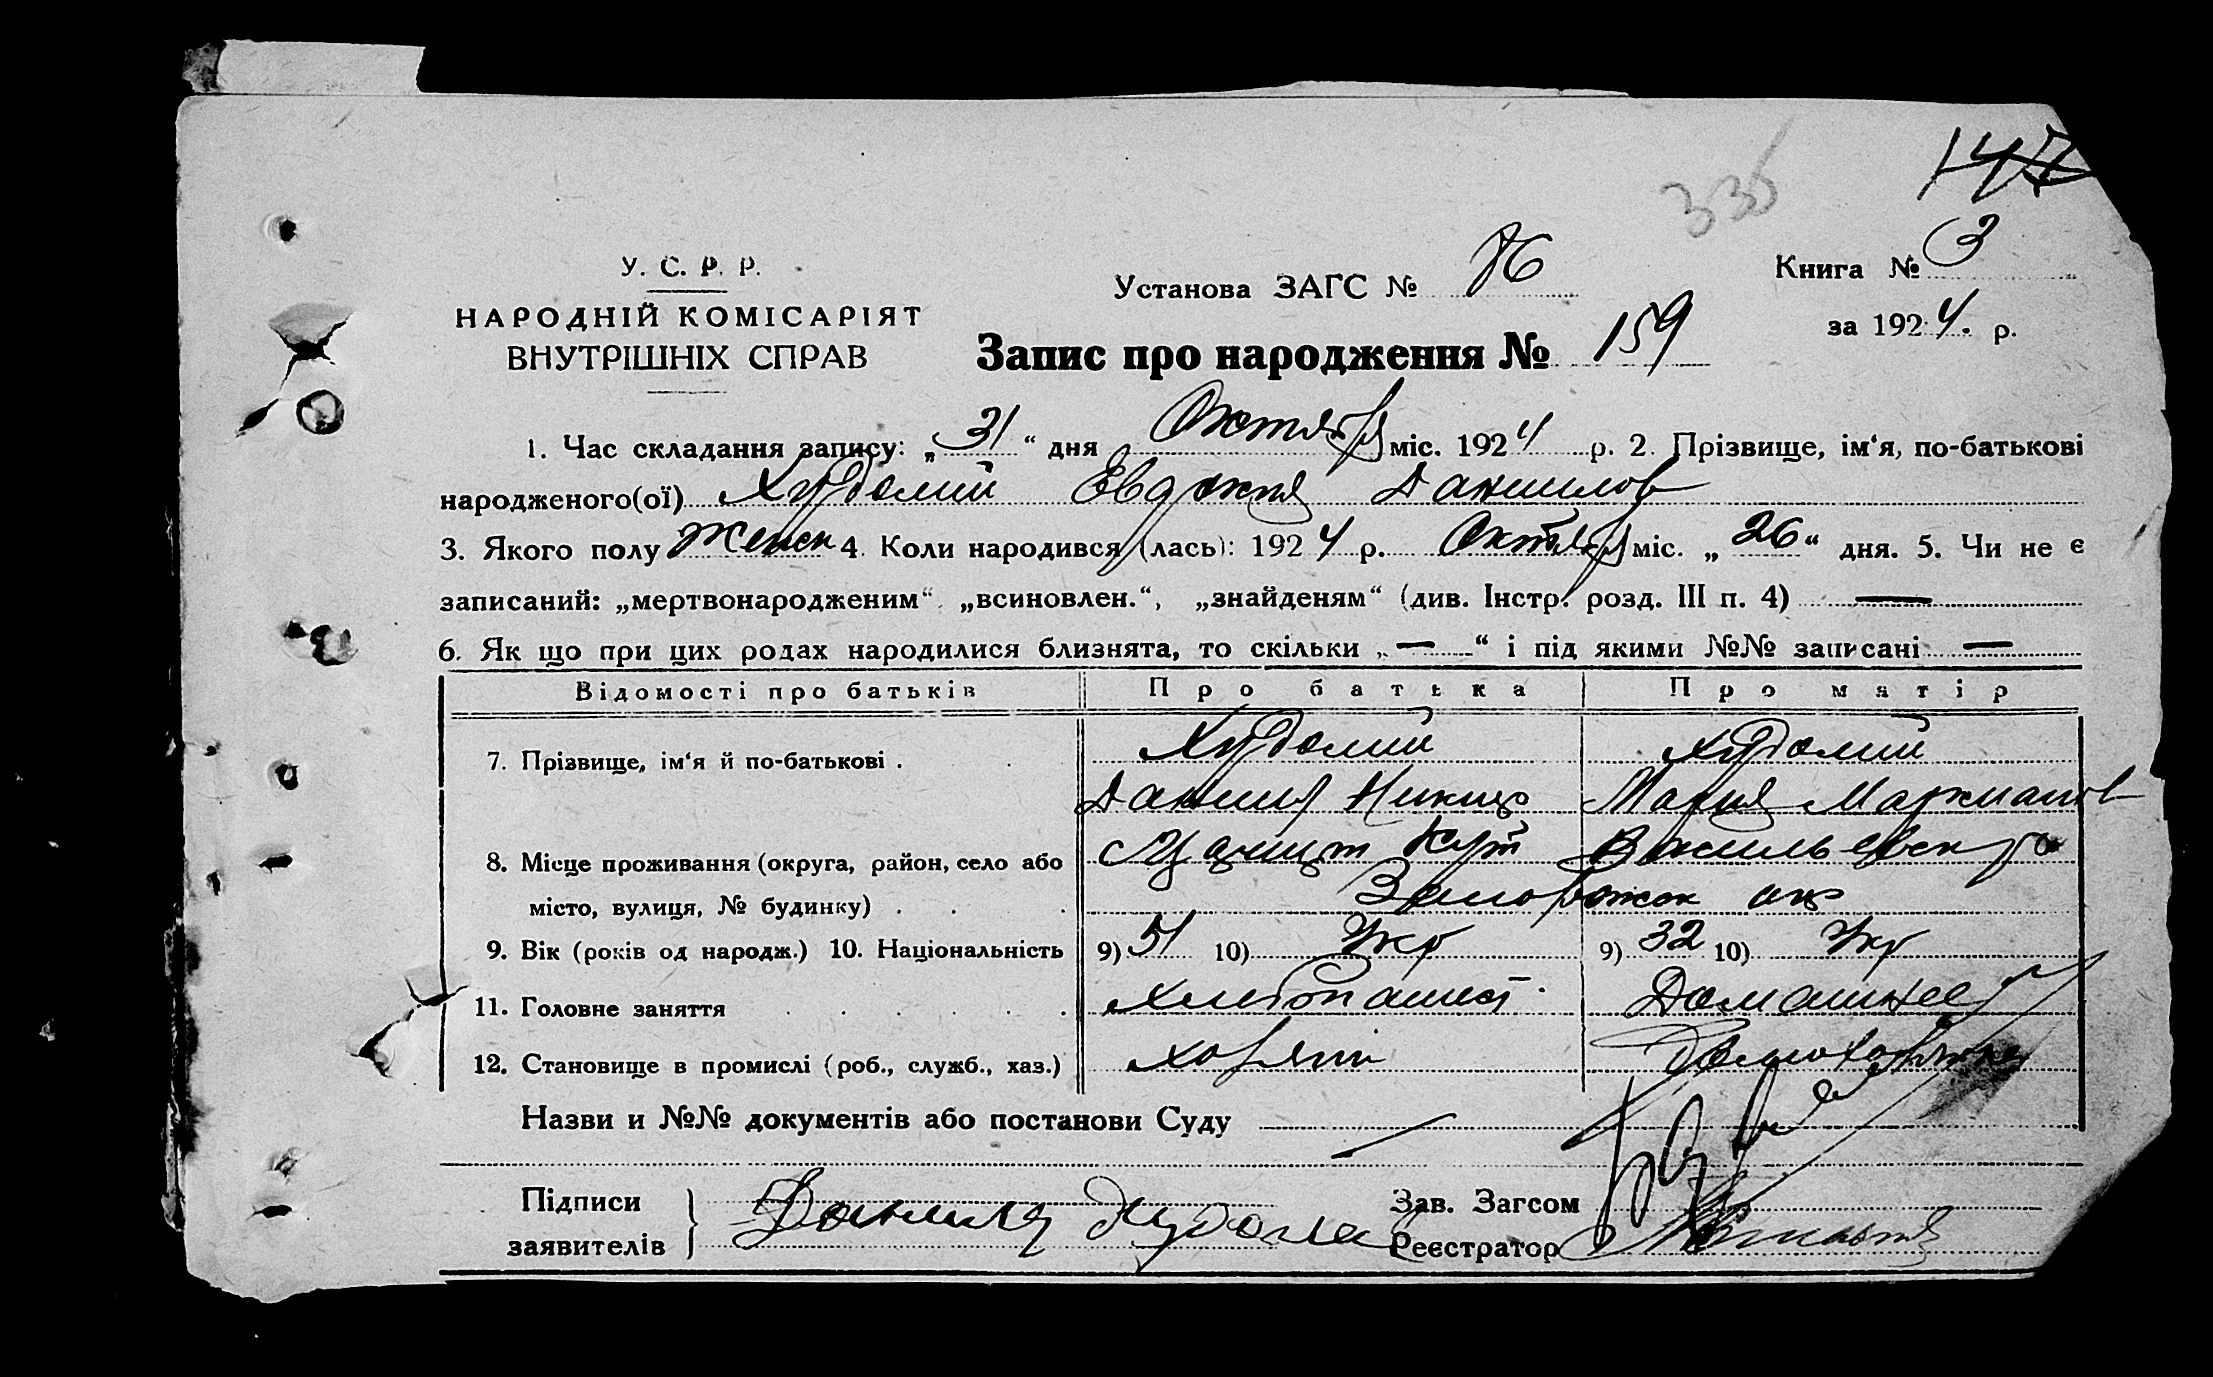 147
335
У. С. Р. Р.
НАРОДНІЙ КОМІСАРІЯТ
ВНУТРІШНІХ СПРАВ
Установа ЗАГС № 76
Книга № 3
за 1924. р.
Запис про народження № 159
1. Час складання запису: „31“ дня Октября міс. 1924 р. 2. Прізвище, ім‘я, по-батькові
народженого(ої) Худолий Евдокия Данилов
3. Якого полу Женск 4. Коли народився (лась): 1924 р. Октября міс. „26“ дня. 5. Чи не є
записаний: „мертвонародженим“, „всиновлен.“, „знайденям“ (див. Інстр. розд. III п. 4) —
6. Як що при цих родах народилися близнята, то скільки „—“ і під якими №№ записані —
Відомості про батьків Про батька Про матір
7. Прізвище, ім‘я й по-батькові . Худолий Худолий
Данил Никиф Мария
8. Місце проживання (округа, район, село або Кут Васильевск р
місто, вулиця, № будинку) . . . Запорожск ок
9. Вік (років од народж.) 10. Національність 9) 51 10) Укр 9) 32 10) Укр
11. Головне заняття . . . . . . Хлебопашест. Домашнее
12. Становище в промислі (роб., служб., хаз.) хозяин
Назви и №№ документів або постанови Суду
Підписи
заявителів } Данила Худолей
Зав. Загсом
Реєстратор